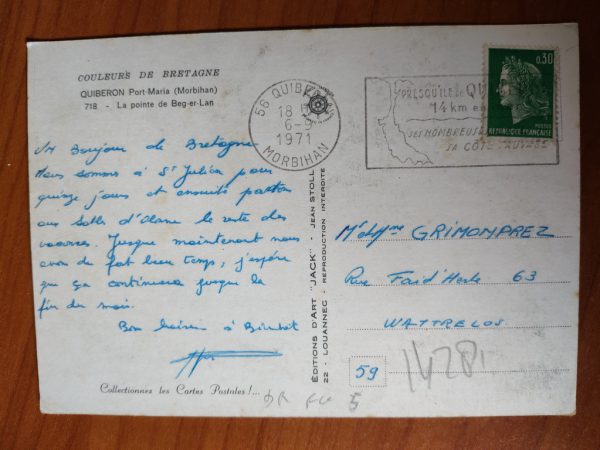 COULEURS DE BRETAGNE
QUIBERON Port-Maria (Morbihan)
718 - La pointe de Beg-er-Lan
Un Bonjour de Bretagne
Nous sommes à St Julien pour
quinze jours et ensuite partons
aux Sables d'Olonne le reste des
Jusque maintenant nous
avons du fort beau temps, j'espère
que ça continuera jusque la
fin du mois.
Bon baisers à Bientôt
Collectionnez les Cartes Postales !...
ÉDITIONS D'ART "JACK" - JEAN STOLL
22 - LOUANNEC - REPRODUCTION INTERDITE
56 QUIBERON
18
6-9
1971
MORBIHAN
PRESQU'ILE de QUI
14 km en
SES NOMBREUSES
SA CÔTE SAUVAGE
0,30
POSTES
REPUBLIQUE FRANÇAISE
Mr et Mme GRIMONPREZ
Rue Faid'Herbe 63
WATTRELOS
59
1428